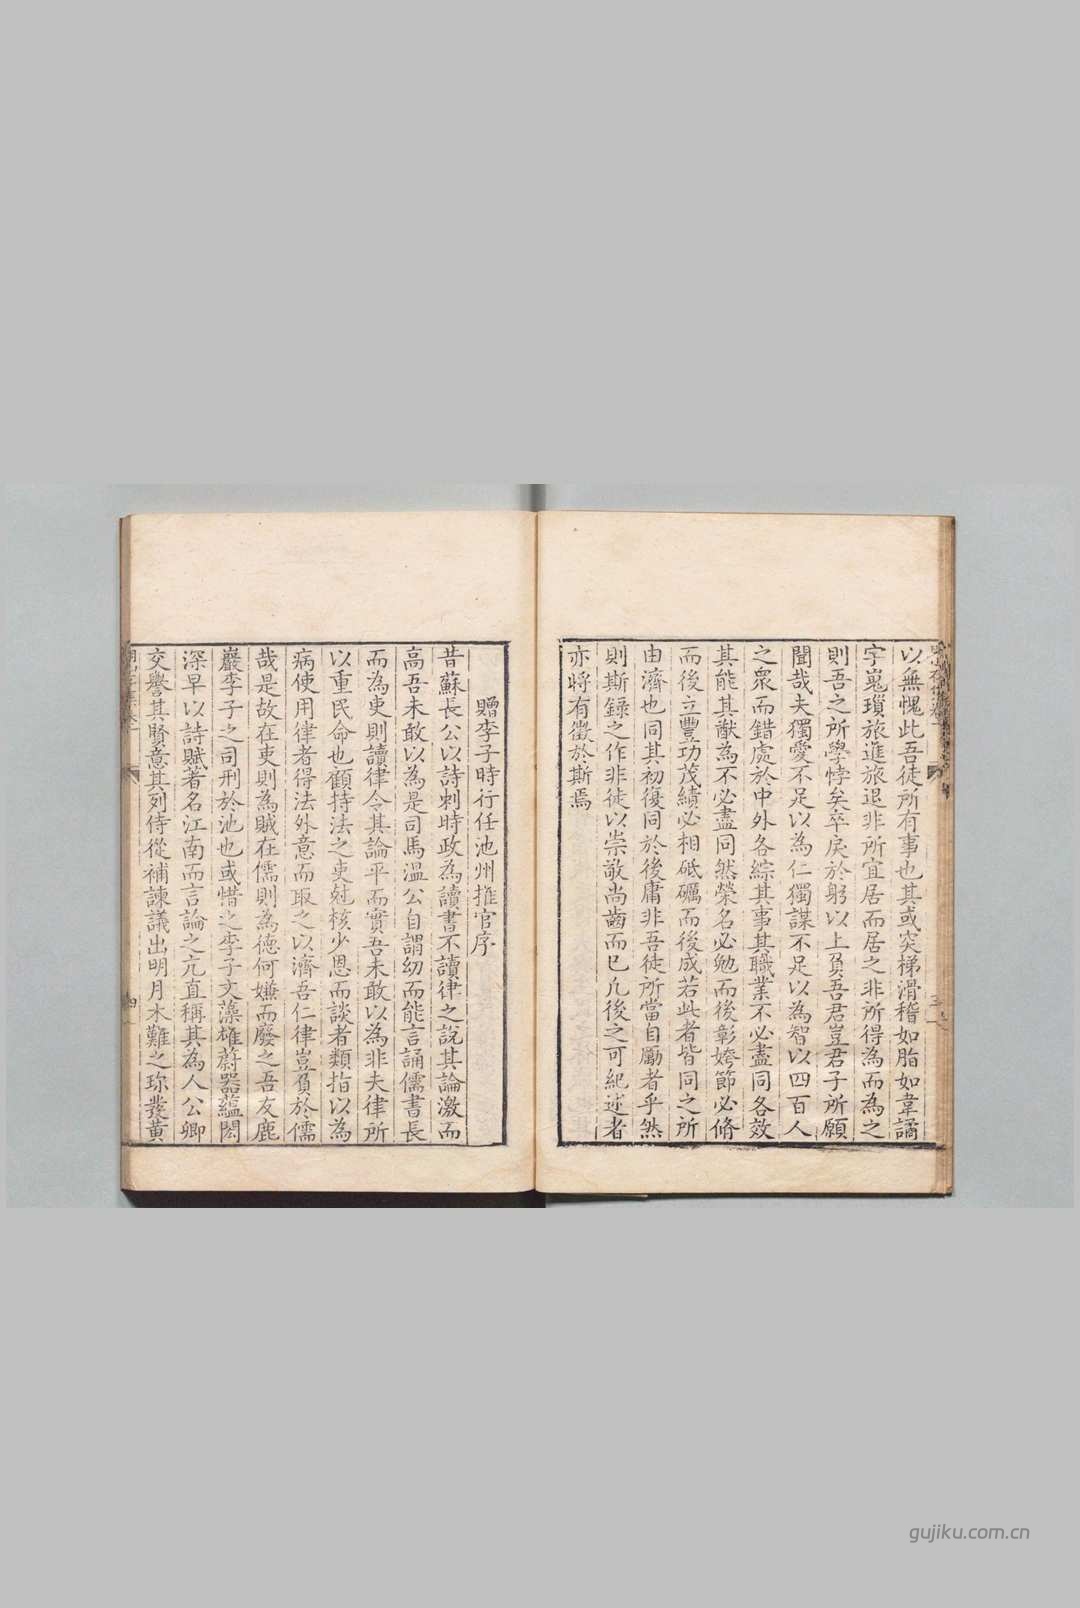 以無愧此吾徒所有事也其或突梯滑稽如脂如韋譎
宇嵬瑣旅進旅退非所宜居而居之非所得為而為之
則吾之所學悖矣卒戾於躬以上負吾君豈君子所願
聞哉夫獨愛不足以為仁獨謀不足以為智以四百人
之眾而錯處於中外各綜其事其職業不必盡同各效
其能其猷為不必盡同然榮名必勉而後彰姱節必脩
而後立豐功茂績必相砥礪而後成若此者皆同之所
由濟也同其初復同於後庸非吾徒所當自勵者乎然
則斯錄之作非徒以崇敬尚齒而巳凡後之可紀述者
亦將有徵於斯焉
三
贈李子時行任池州推官序
昔蘇長公以詩刺時政為讀書不讀律之說其論激而
高吾未敢以為是司馬溫公自謂幼而能言誦儒書長
而為吏則讀律令其論平而實吾未敢以為非夫律所
以重民命也顧持法之吏尅核少恩而談者類指以為
病使用律者得法外意而取之以濟吾仁律豈負於儒
哉是故在吏則為賊在儒則為德何嫌而廢之吾友鹿
巖李子之司刑於池也或惜之李子文藻雄蔚器蘊閎
深早以詩賦著名江南而言論之亢直稱其為人公卿
交譽其賢意其列侍從補諫議出明月木難之珎發黃
四
gujiku.com.cn